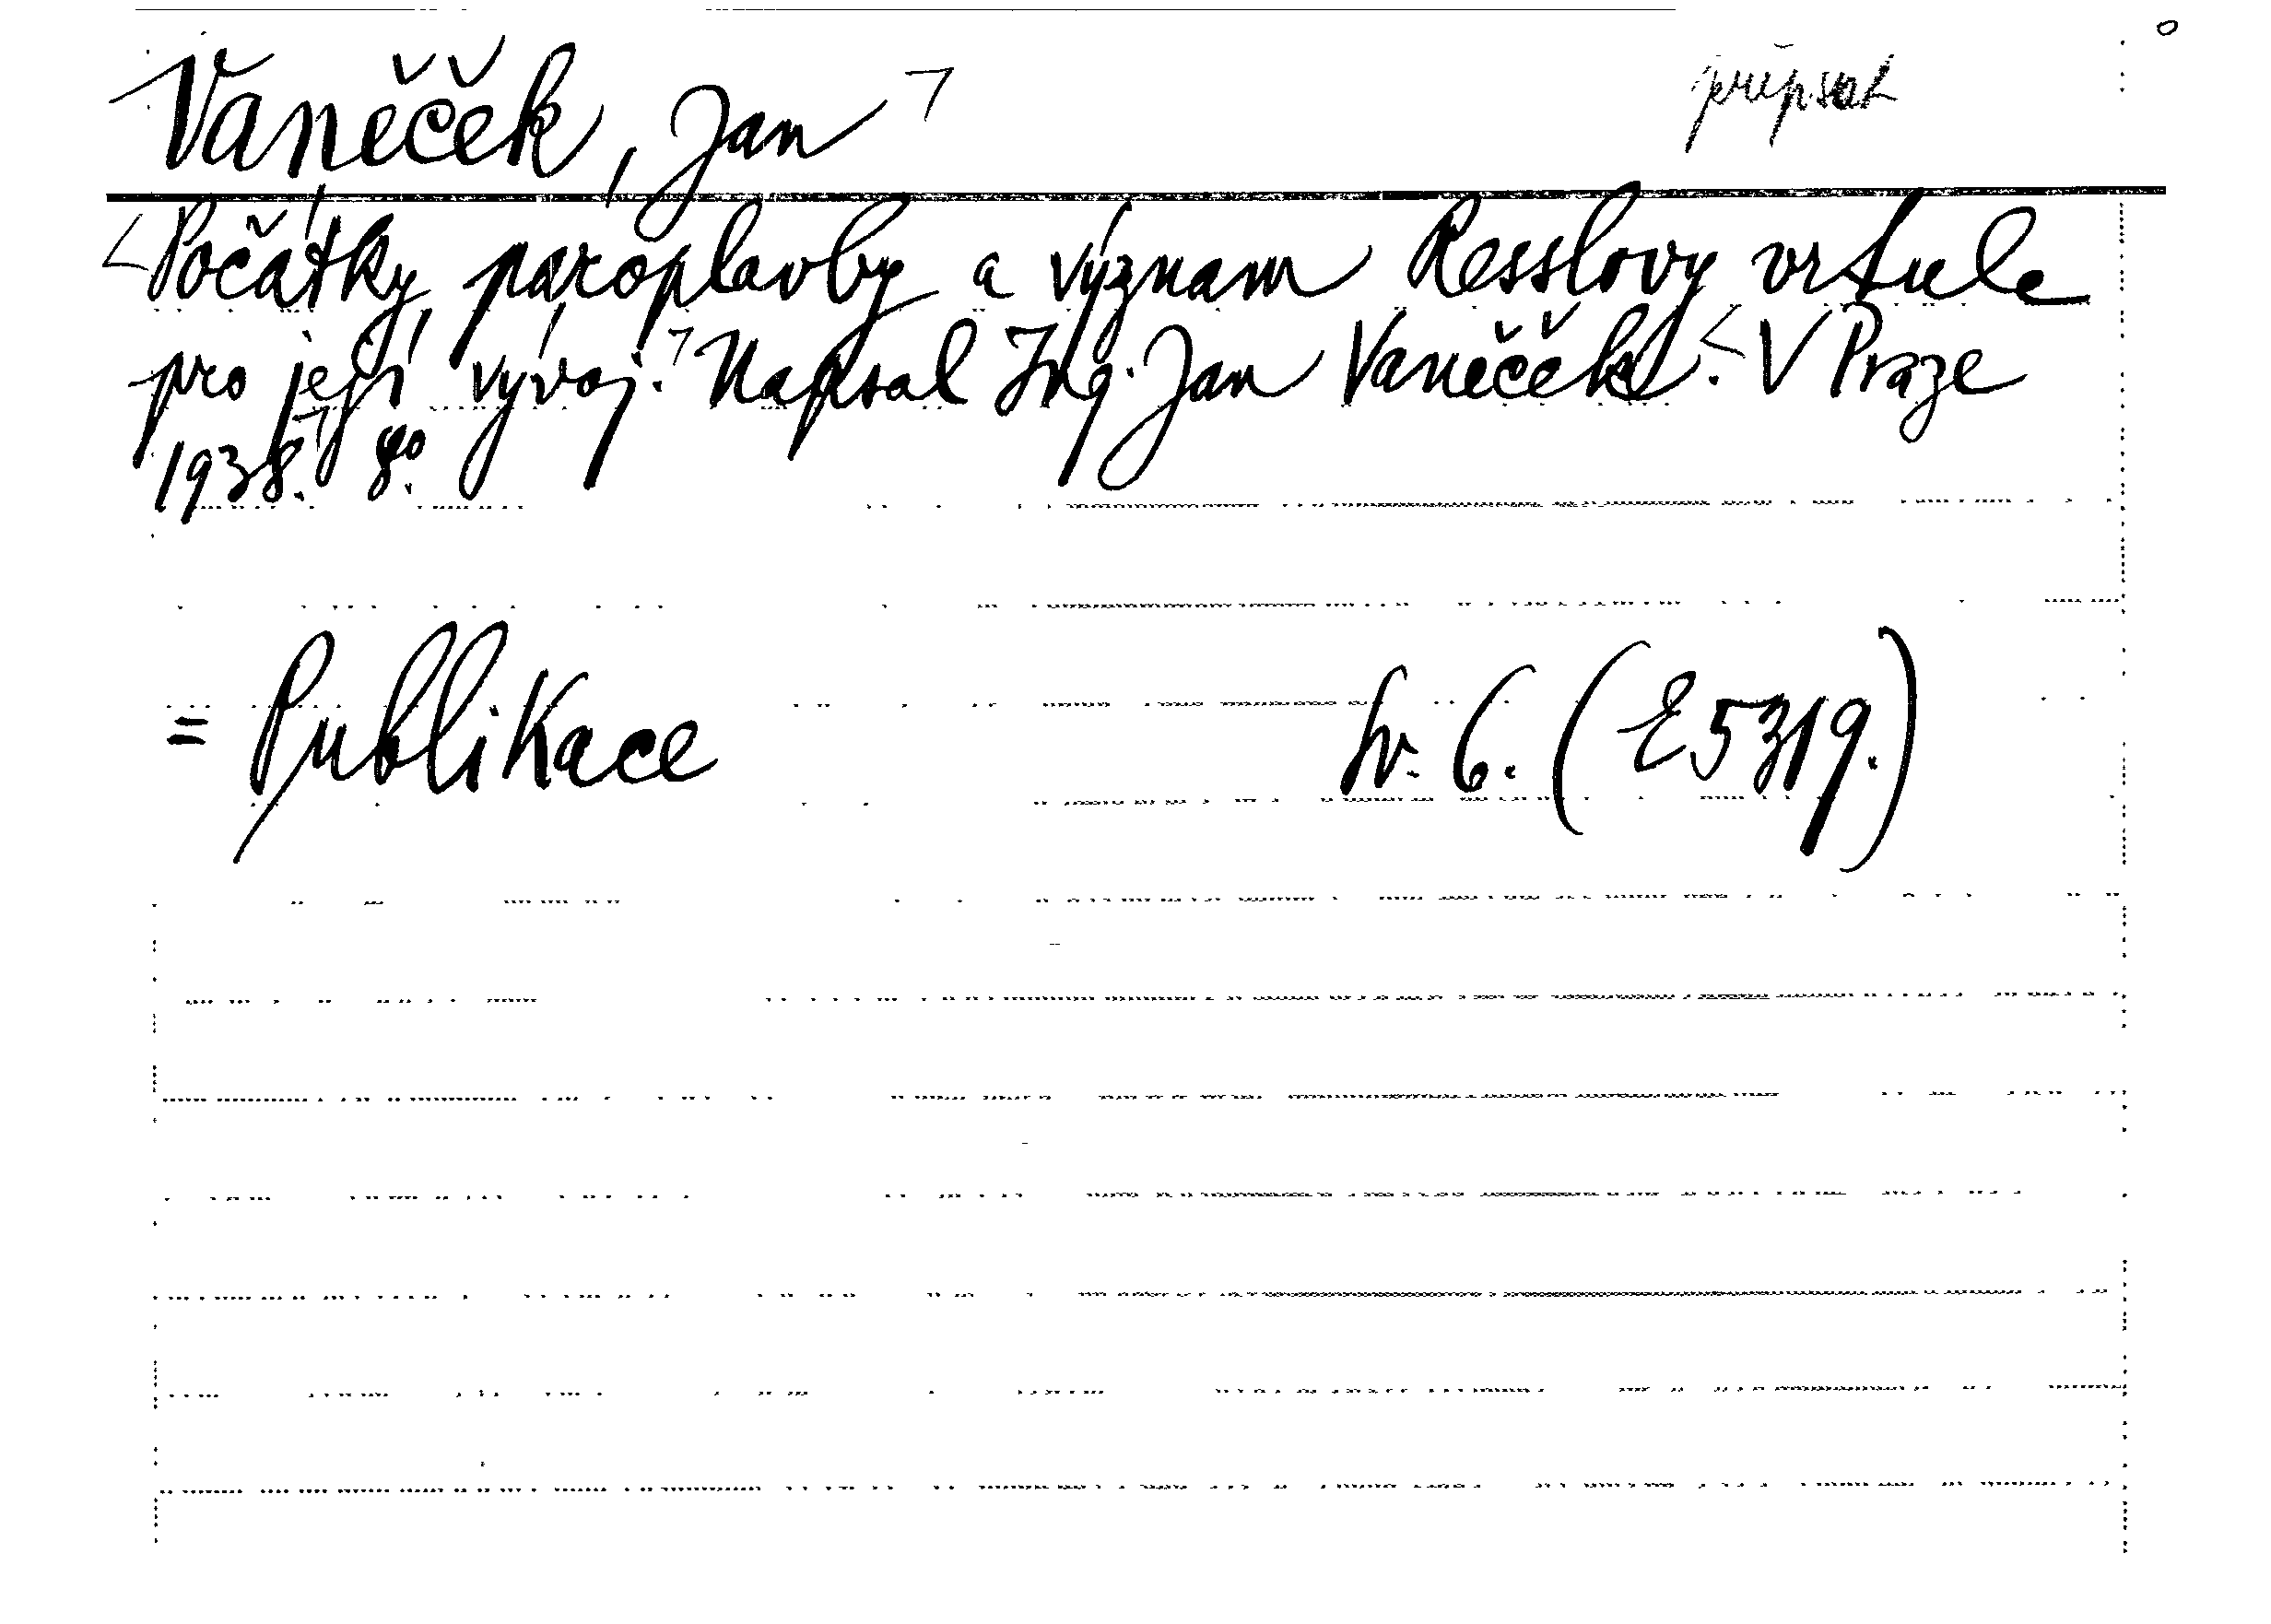 Vaněček, Jan
připsat
Počátky paroplavby a význam Resslovy vrtule
pro její vývoj. Napsal Ing. Jan Vaněček. V Praze
1938. 8o.
= Publikace sv. 6. (E 5319.)